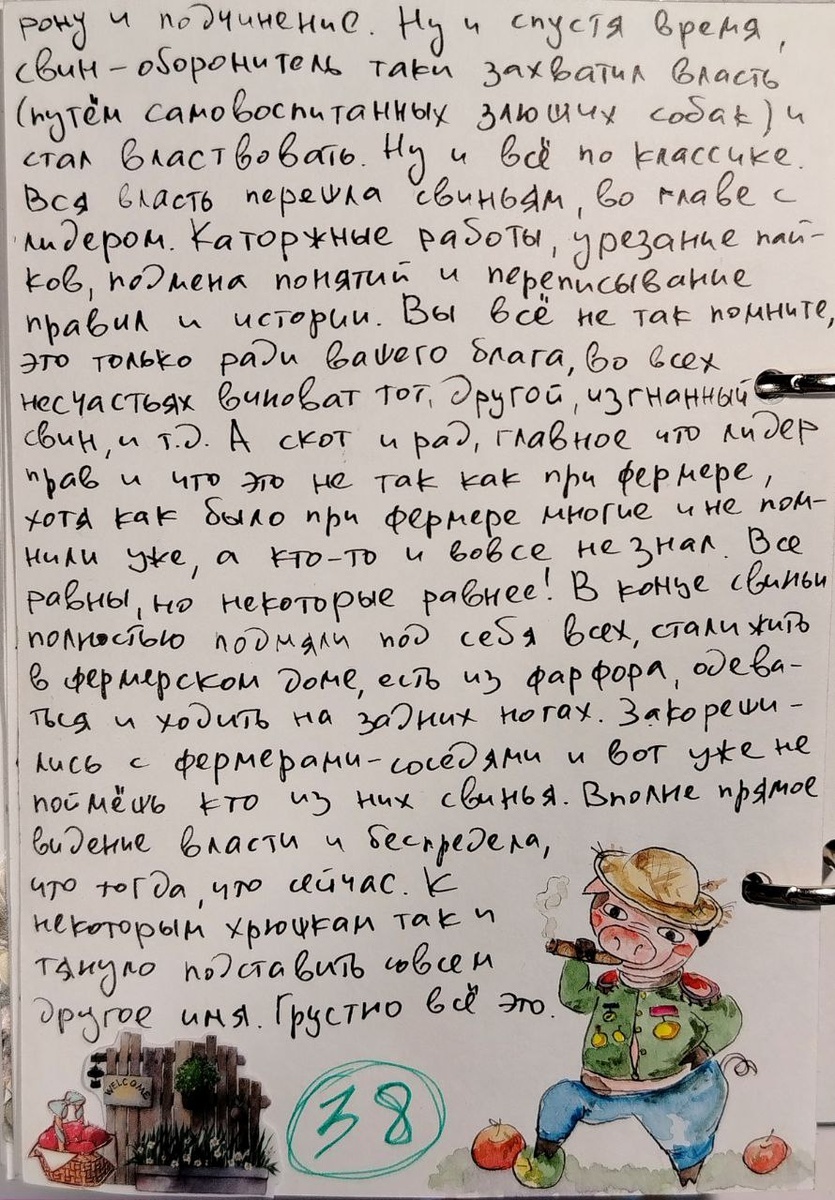 рону и подчинение. Ну и спустя время,
свин-оборонитель таки захватил власть
(путём самовоспитанных злющих собак) и
стал властвовать. Ну и всё по классике.
Вся власть перешла свиньям, во главе с
лидером. Каторжные работы, урезание пай-
ков, подмена понятий и переписывание
правил и истории. Вы всё не так помните,
это только ради вашего блага, во всех
несчастьях виноват тот, другой, изгнанный
свин, и т.д. А скот и рад, главное что лидер
прав и что это не так как при фермере,
хотя как было при фермере многие и не пом-
нили уже, а кто-то и вовсе не знал. Все
равны, но некоторые равнее! В конце свиньи
полностью подмяли под себя всех, стали жить
в фермерском доме, есть из фарфора, одева-
ться и ходить на задних ногах. Закореши-
лись с фермерами-соседями и вот уже не
поймёшь кто из них свинья. Вполне прямое
видение власти и беспредела,
что тогда, что сейчас. К
некоторым хрюшкам так и
тянуло подставить совсем
другое имя. Грустно всё это.
WELCOME
38